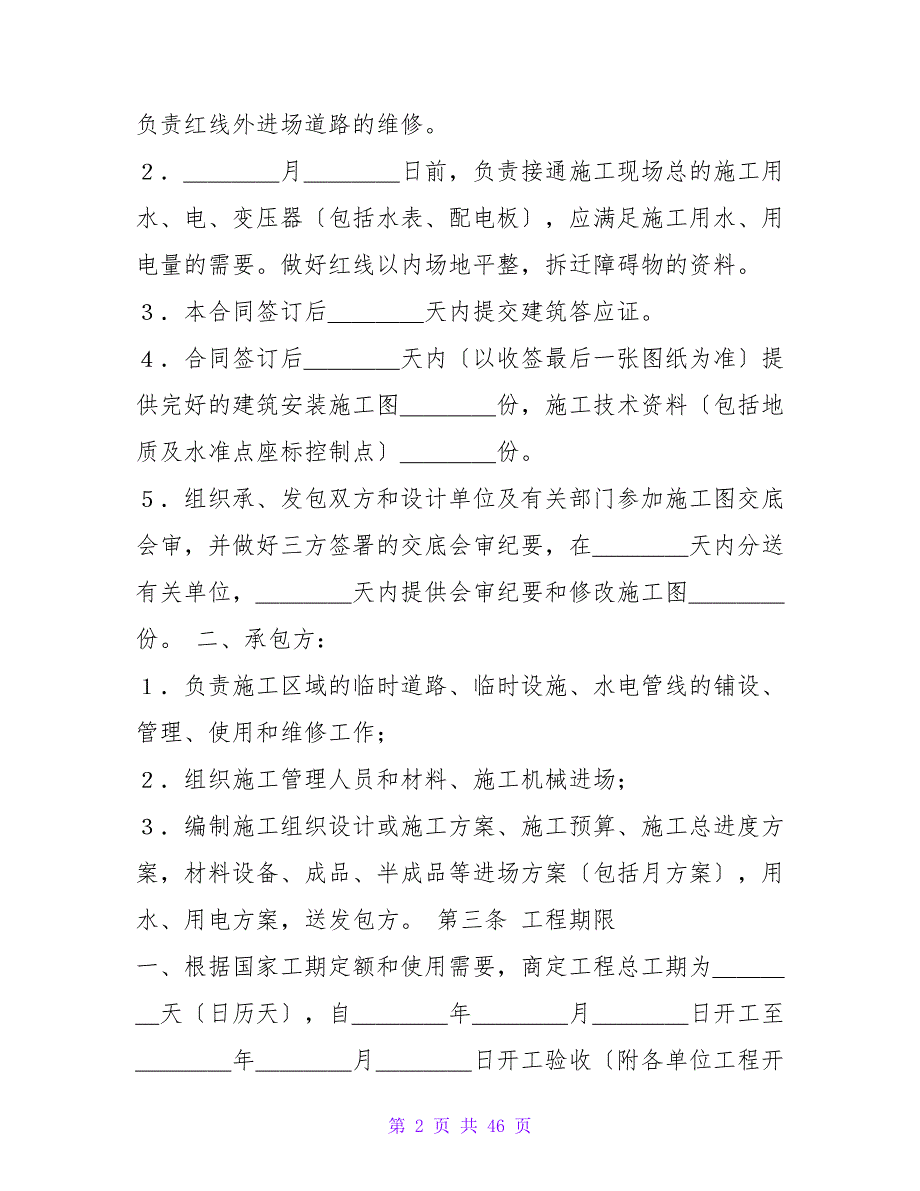 负责红线外进场道路的维修。
２．________月________日前，负责接通施工现场总的施工用
水、电、变压器〔包括水表、配电板〕，应满足施工用水、用
电量的需要。做好红线以内场地平整，拆迁障碍物的资料。
３．本合同签订后________天内提交建筑答应证。
４．合同签订后________天内〔以收签最后一张图纸为准〕提
供完好的建筑安装施工图________份，施工技术资料〔包括地
质及水准点座标控制点〕________份。
５．组织承、发包双方和设计单位及有关部门参加施工图交底
会审，并做好三方签署的交底会审纪要，在________天内分送
有关单位，________天内提供会审纪要和修改施工图________
份。 二、承包方：
１．负责施工区域的临时道路、临时设施、水电管线的铺设、
管理、使用和维修工作；
２．组织施工管理人员和材料、施工机械进场；
３．编制施工组织设计或施工方案、施工预算、施工总进度方
案，材料设备、成品、半成品等进场方案〔包括月方案〕，用
水、用电方案，送发包方。 第三条 工程期限
一、根据国家工期定额和使用需要，商定工程总工期为______
__天〔日历天〕，自________年________月________日开工至
________年________月________日开工验收〔附各单位工程开
第 2 页 共 46 页